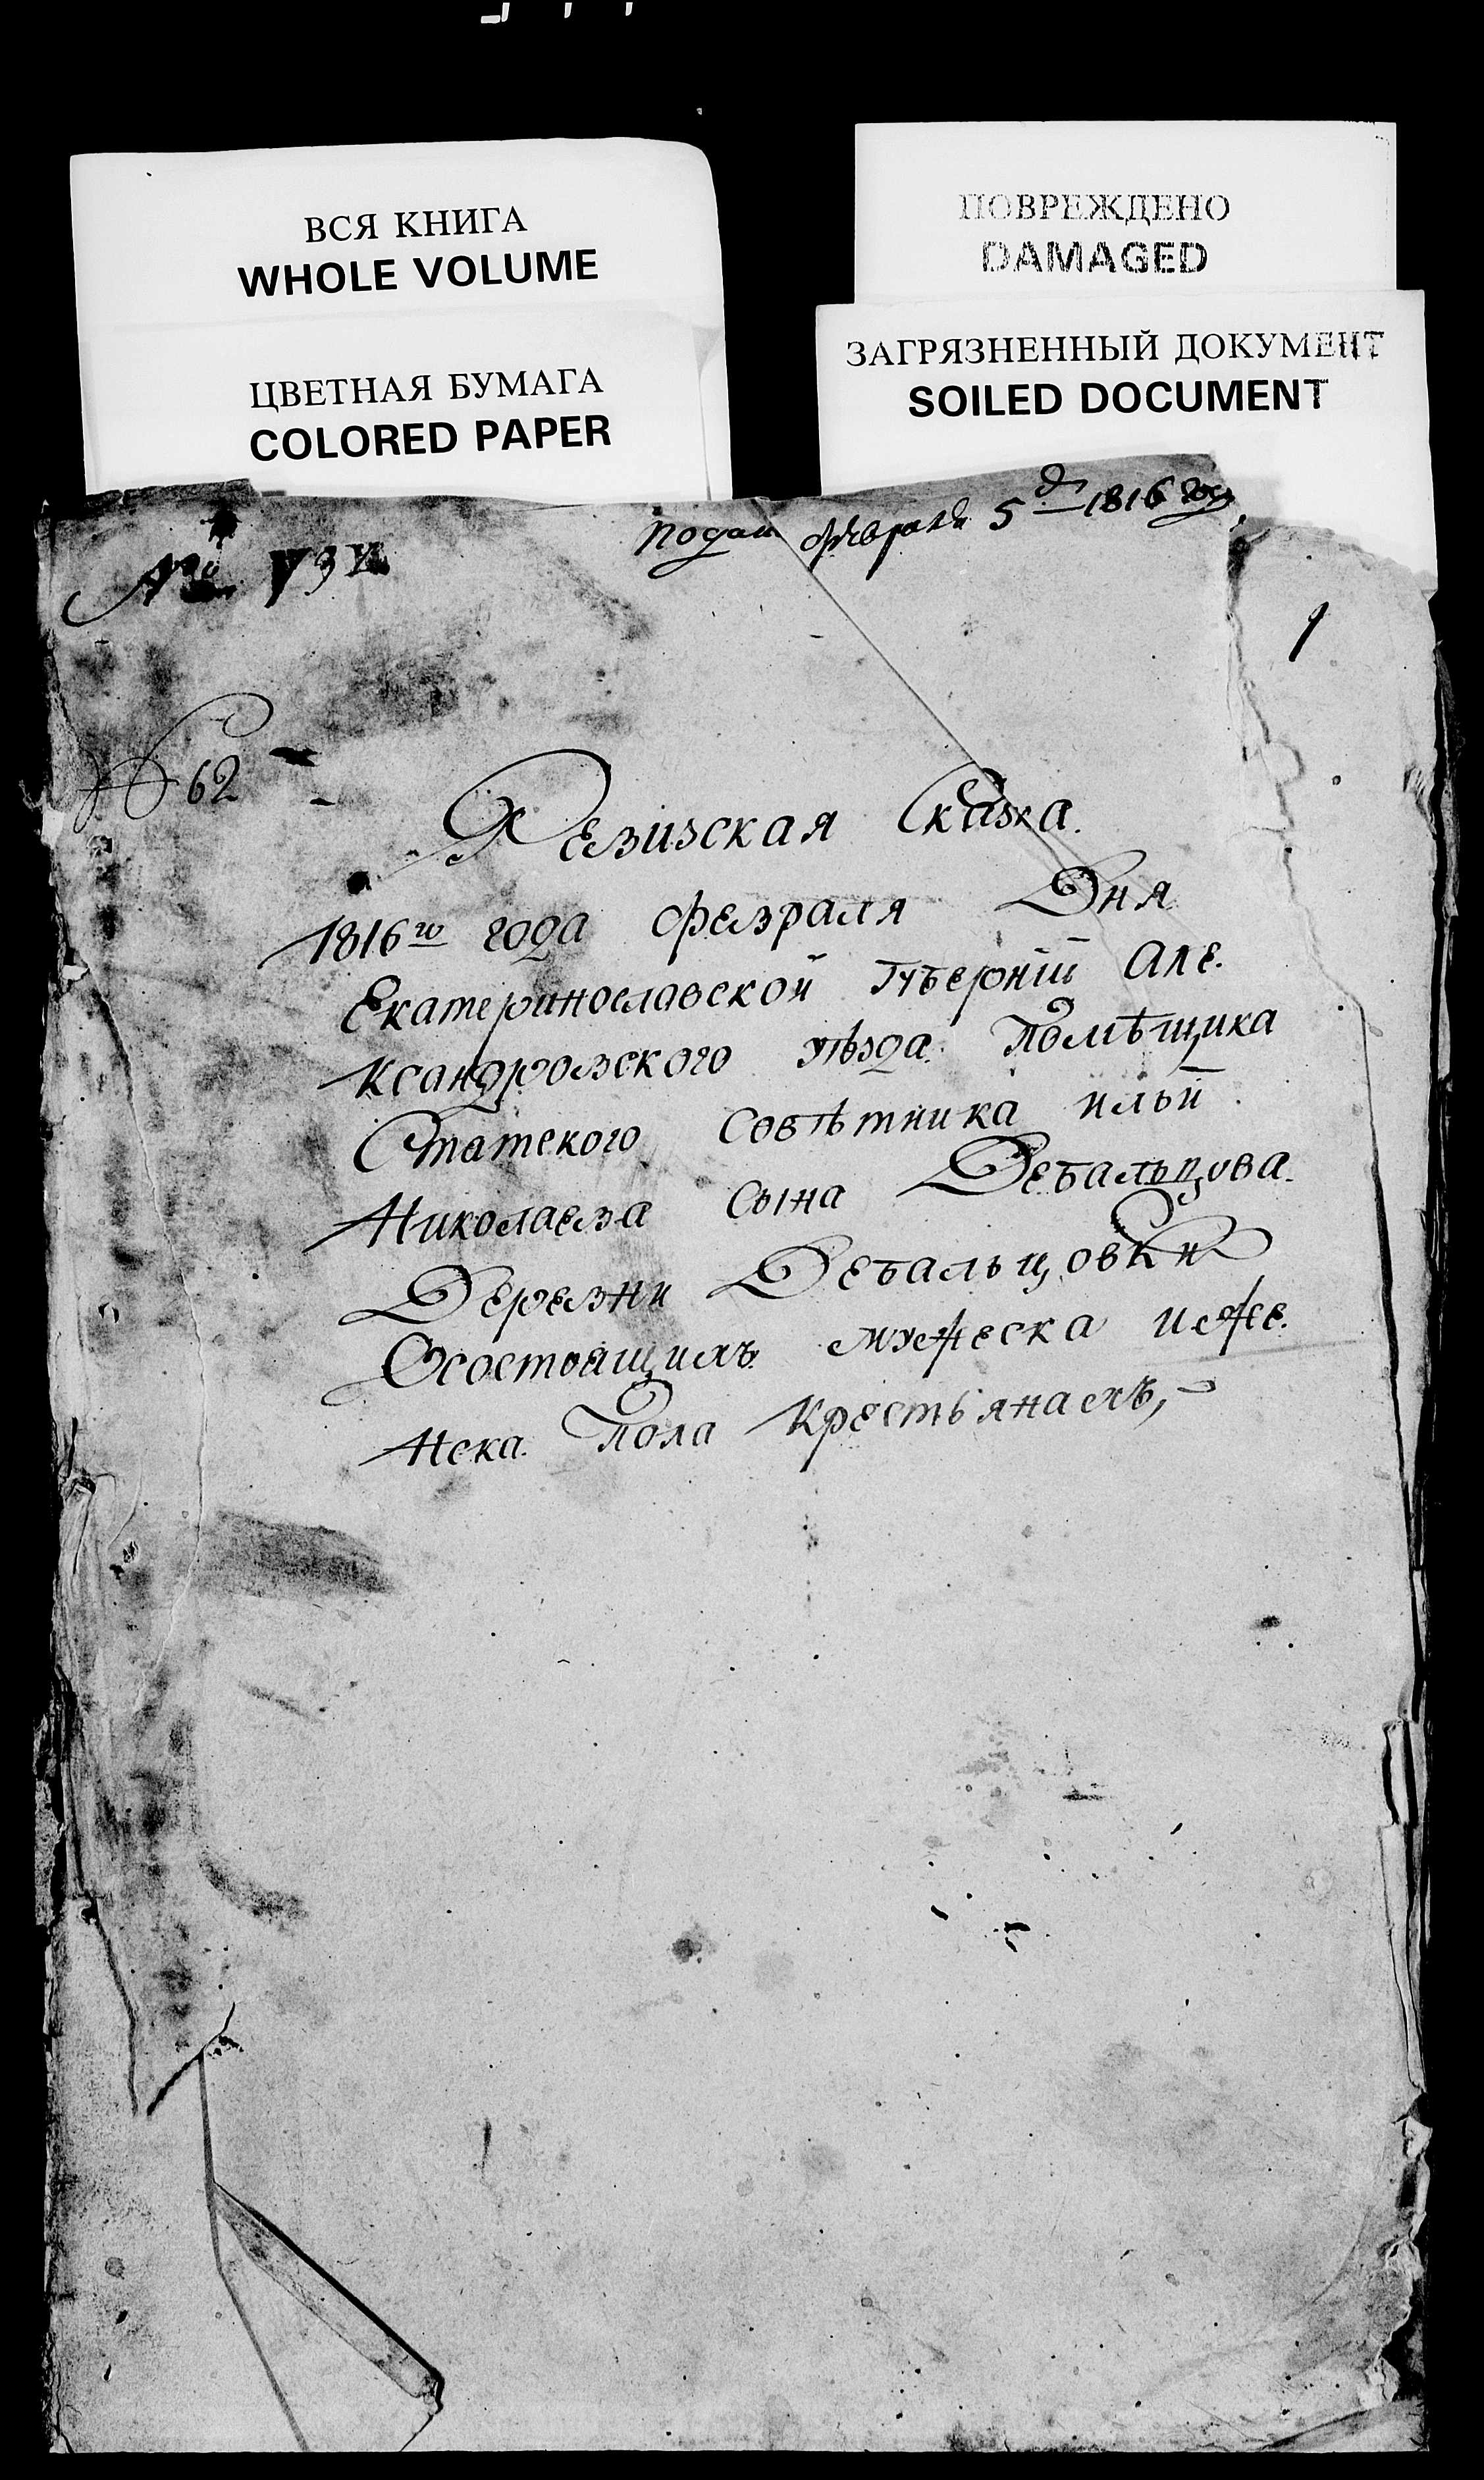 ВСЯ КНИГА
WHOLE VOLUME
ЦВЕТНАЯ БУМАГА
COLORED PAPER
ПОВРЕЖДЕНО
DAMAGED
ЗАГРЯЗНЕННЫЙ ДОКУМЕНТ
SOILED DOCUMENT
подана февраля 5 д 1816 году
1
№ 62
Ревизская Сказка.
1816го года февраля Дня
Екатеринославской Губерніи Але.
ксандровского уѣзда Помѣщика
Статского Совѣтника ильи
Николаева Сына Дебальцова.
Деревни Дебальцовки
Осостоящихъ мужеска и же.
нска пола Крестьянахъ,